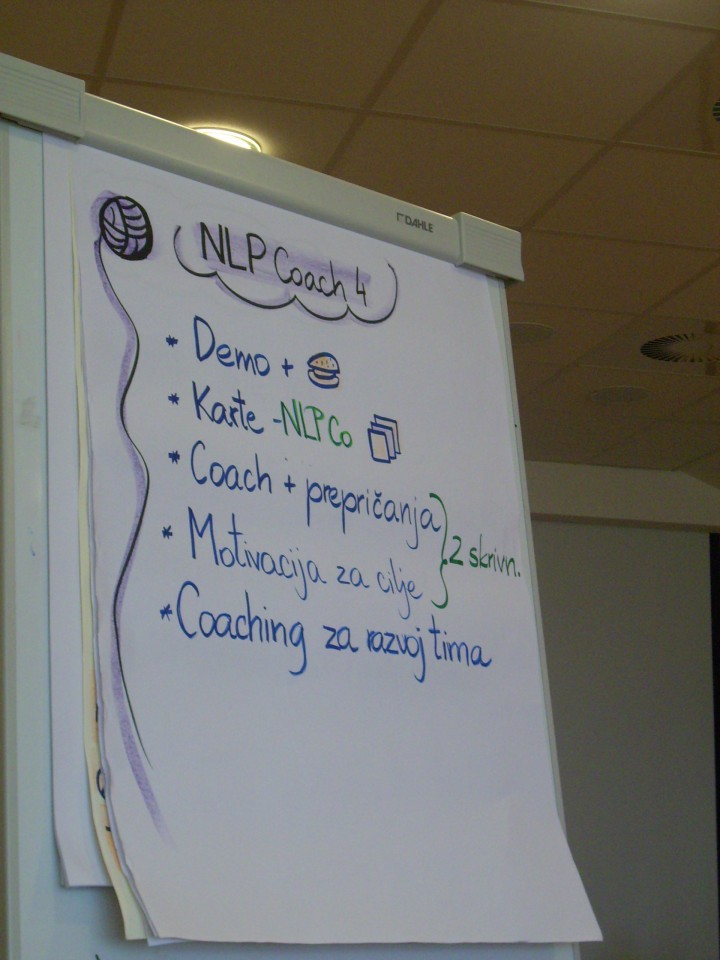 DAHLE
NLP Coach 4
* Demo +
* Karte - NLP Co
* Coach + prepričanja
* Motivacija za cilje
2 skrivn.
* Coaching za razvoj tima